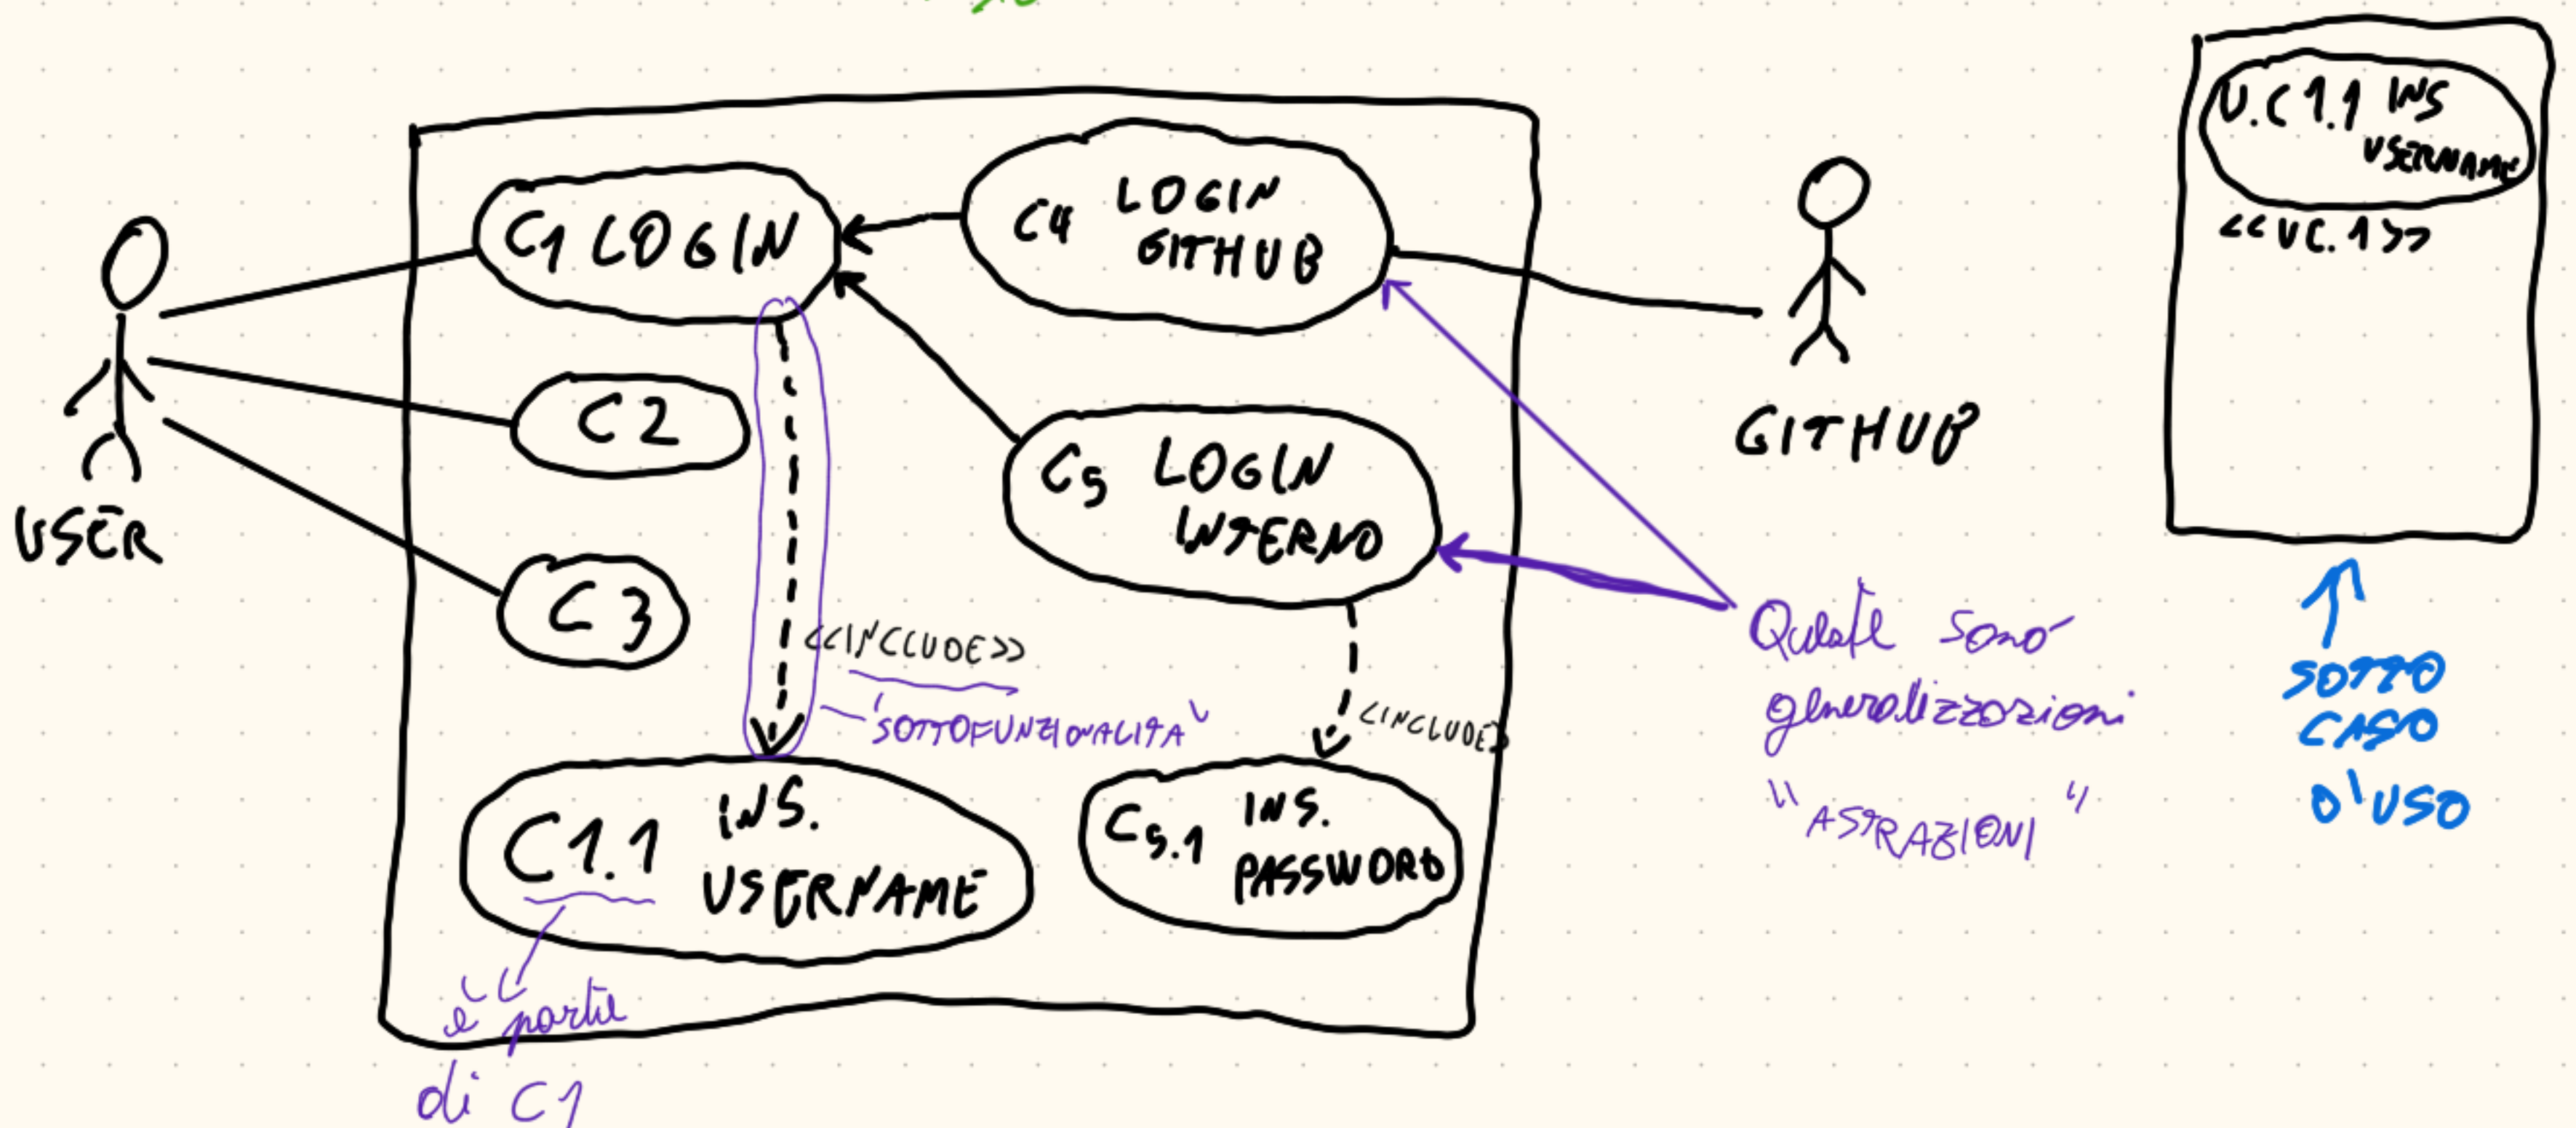 USER
C1 LOGIN
C2
C3
C4 LOGIN
GITHUB
C5 LOGIN
INTERNO
<<INCLUDE>>
'SOTTOFUNZIONALITA'
<INCLUDE>
C1.1 INS.
USERNAME
C5.1 INS.
PASSWORD
è parte
di C1
GITHUB
Queste sono
generalizzazioni
"ASTRAZIONI"
U.C 1.1 INS
USERNAME
<<UC.1>>
SOTTO
CASO
D'USO